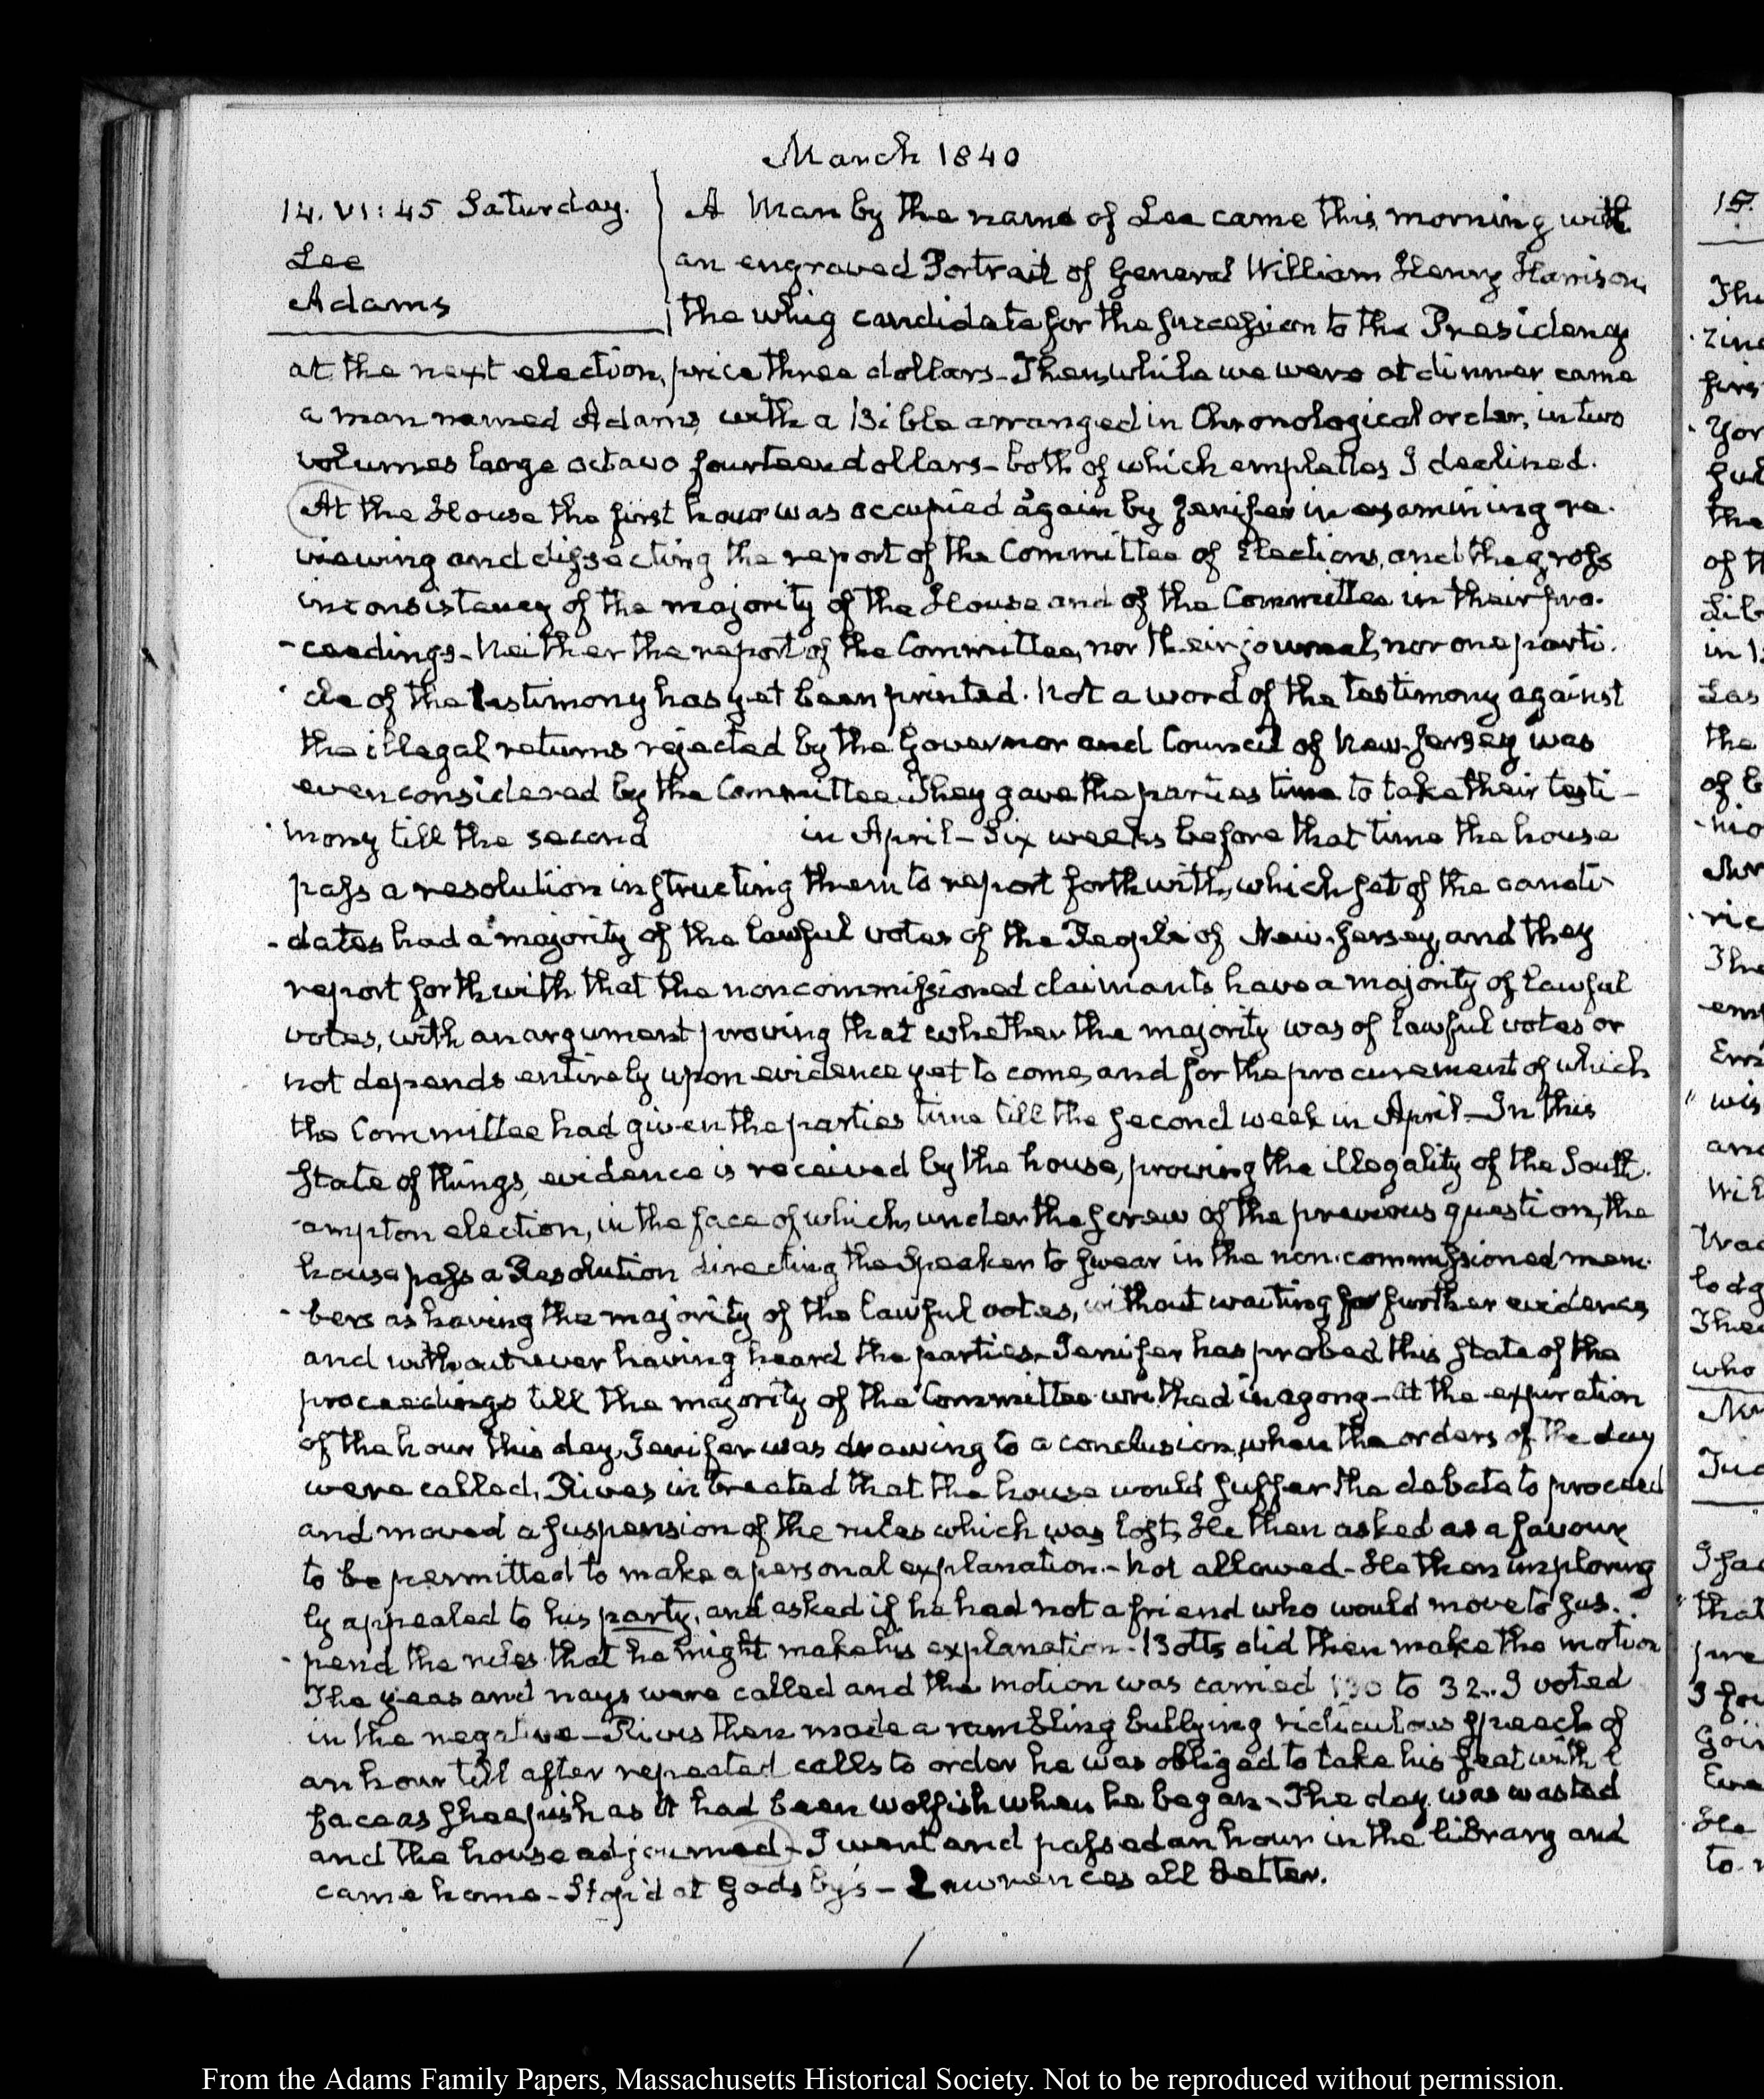 March 1840
14. VI: 45 Saturday.
Lee
Adams
A Man by the name of Lee came this morning with
an engraved Portrait of General William Henry Harrison,
the whig candidate for the succession to the Presidency
at the next election, price three dollars - Then, while we were at dinner came
a man named Adams, with a Bible arranged in Chronological order, in two
volumes large octavo fourteen dollars - both of which emplettes I declined.
At the House the first hour was occupied again by Jenifer in examining re-
viewing and dissecting the report of the Committee of Elections, and the gross
inconsistency of the majority of the House and of the Committee in their pro-
-ceedings - Neither the report of the Committee, nor their journal, nor one parti-
-cle of the testimony has yet been printed. Not a word of the testimony against
the illegal returns rejected by the Governor and Council of New-Jersey was
even considered by the Committee. They gave the parties time to take their testi-
-mony till the second in April - Six weeks before that time the house
pass a resolution instructing them to report forthwith, which set of the candi-
-dates had a majority of the lawful votes of the People of New-Jersey, and they
report forthwith that the noncommissioned claimants have a majority of lawful
votes, with an argument proving that whether the majority was of lawful votes or
not depends entirely upon evidence yet to come, and for the procurement of which
the Committee had given the parties time till the second week in April - In this
State of things, evidence is received by the house, proving the illegality of the South-
-ampton election, in the face of which, under the screw of the previous question, the
house pass a Resolution directing the Speaker to swear in the non-commissioned mem-
-bers as having the majority of the lawful votes, without waiting for further evidence,
and without ever having heard the parties - Jenifer has probed this state of the
proceedings till the majority of the Committee writhed in agony - At the expiration
of the hour this day, Jenifer was drawing to a conclusion, when the orders of the day
were called, Rives intreated that the house would suffer the debate to proceed
and moved a suspension of the rules which was lost, He then asked as a favour
to be permitted to make a personal explanation. - Not allowed - He then imploring
ly appealed to his party, and asked if he had not a friend who would move to sus-
-pend the rules that he might make his explanation - Botts did then make the motion
The yeas and nays were called and the motion was carried 130 to 32. I voted
in the negative - Rives then made a rambling bullying ridiculous speech of
an hour till after repeated calls to order he was obliged to take his seat with a
face as sheepish as it had been wolfish when he began - The day was wasted
and the house adjourned - I went and passed an hour in the library and
came home - Stop'd at Gadsby's - Lawrences all better.
15.
From the Adams Family Papers, Massachusetts Historical Society. Not to be reproduced without permission.